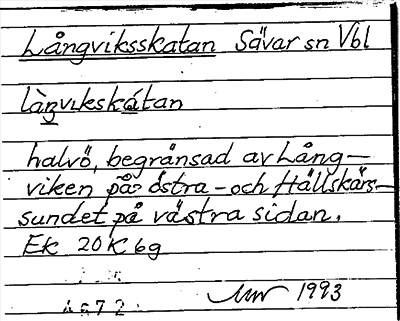 Långviksskatan Sävar sn Vbl
làŋvıkskátan
halvö, begränsad av Lång-
viken på östra - och Hällskärs-
sundet på västra sidan.
Ek 20K 6g
1993